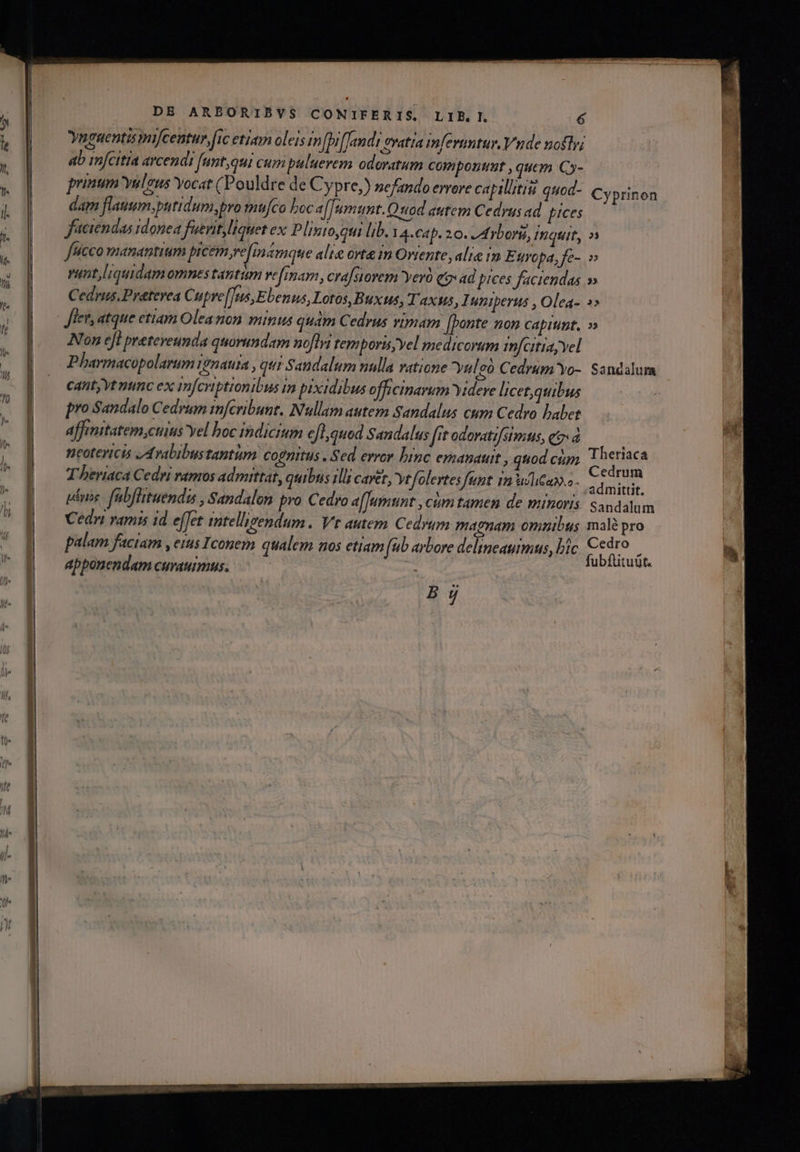 DE ARBORIBVS CONIFERIS. LIB. I. 6
vnguentis miscentur, sic etiam oleis inspissandi gratia inseruntur. Vnde nostri
ab inscitia arcendi sunt, qui cum puluerem odoratum componunt, quem Cy-
prinum vulgus vocat (Pouldre de Cypre,) nefando errore capillitiũ quod-
Cyprinon
dam flauum, putidum, pro musco hoc assumunt. Quod autem Cedrus ad pices
faciendas idonea fuerit, liquet ex Plinio, qui lib. 14. cap. 20. Arborũ, inquit, »
succo manantium picem, resinámque aliæ ortæ in Oriente, aliæ in Europa, fe- »
runt, liquidam omnes tantùm resinam, crassiorem verò & ad pices faciendas »
Cedrus. Præterea Cupressus, Ebenus, Lotos, Buxus, Taxus, Iuniperus, Olea- »
ster, atque etiam Olea non minus quàm Cedrus rimam sponte non capiunt. »
Non est prætereunda quorundam nostri temporis, vel medicorum inscitia, vel
Pharmacopolarum ignauia, qui Sandalum nulla ratione vulgò Cedrum vo-
Sandalum
cant, vt nunc ex inscriptionibus in pixidibus officinarum videre licet, quibus
pro Sandalo Cedrum inscribunt. Nullam autem Sandalus cum Cedro habet
affinitatem, cuius vel hoc indicium est, quod Sandalus sit odoratissimus, & à
neotericis Arabibus tantùm cognitus. Sed error hinc emanauit, quod cùm
Theriaca
Theriaca Cedri ramos admittat, quibus illi carẽt, vt solertes sunt in
Cedrum
admittit.
substituendis, Sandalon pro Cedro assumunt, cùm tamen de minoris
Sandalum
Cedri ramis id esset intelligendum. Vt autem Cedrum magnam omnibus
malè pro
palam faciam, eius Iconem qualem nos etiam sub arbore delineauimus, hîc
Cedro
apponendam curauimus.
substituũt.
B ij